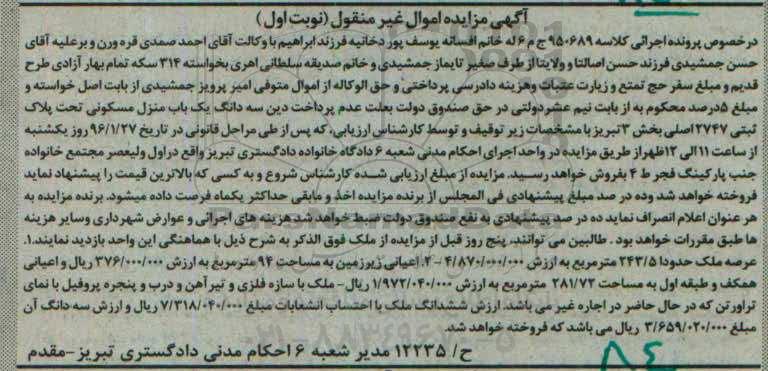 آگهی مزایده اموال غیر منقول (نوبت اول)
در خصوص پرونده اجرائی کلاسه ۹۵۰۶۸۹ ج ۶ له خانم افسانه یوسف پور دخانیه فرزند ابراهیم با وکالت آقای احمد صمدی قره ورن و بر علیه آقای
حسن جمشیدی فرزند حسن اصالتا و ولایتا از طرف صغیر تایماز جمشیدی و خانم صدیقه سلطانی اهری بخواسته ۳۱۴ سکه تمام بهار آزادی طرح
قدیم و مبلغ سفر حج تمتع و زیارت عتبات وهزینه دادرسی پرداختی و حق الوکاله از اموال متوفی امیر پرویز جمشیدی از بابت اصل خواسته و
مبلغ ۵درصد محکوم به از بابت نیم عشر دولتی در حق صندوق دولت بعلت عدم پرداخت دین سه دانگ یک باب منزل مسکونی تحت پلاک
ثبتی ۲۷۴۷ اصلی بخش ۳ تبریز با مشخصات زیر توقیف و توسط کارشناس ارزیابی، که پس از طی مراحل قانونی در تاریخ ۹۶/۱/۲۷ روز یکشنبه
از ساعت ۱۱ الی ۱۲ظهر از طریق مزایده در واحد اجرای احکام مدنی شعبه ۶ دادگاه خانواده دادگستری تبریز واقع در اول ولیعصر مجتمع خانواده
جنب پارکینگ فجر ط ۴ بفروش خواهد رسید. مزایده از مبلغ ارزیابی شده کارشناس شروع و به کسی که بالاترین قیمت را پیشنهاد نماید
فروخته خواهد شد وده در صد مبلغ پیشنهادی فی المجلس از برنده مزایده اخذ و مابقی حداکثر یکماه فرصت داده میشود. برنده مزایده به
هر عنوان اعلام انصراف نماید ده در صد پیشنهادی به نفع صندوق دولت ضبط خواهد شد. هزینه های اجرائی و عوارض شهرداری وسایر هزینه
ها طبق مقررات خواهد بود . طالبین می توانند، پنج روز قبل از مزایده از ملک فوق الذکر به شرح ذیل با هماهنگی این واحد بازدید نمایند.۱.
عرصه ملک حدودا ۲۴۳/۵ مترمربع به ارزش ۴/۸۷۰/۰۰۰/۰۰۰ ۲- اعیانی زیرزمین به مساحت ۹۴ مترمربع به ارزش ۳۷۶/۰۰۰/۰۰۰ ریال و اعیانی
همکف و طبقه اول به مساحت ۲۸۱/۷۲ مترمربع به ارزش ۱/۹۷۲/۰۴۰/۰۰۰ ریال- ملک با سازه فلزی و تیرآهن و درب و پنجره پروفیل با نمای
تراورتن که در حال حاضر در اجاره غیر می باشد. ارزش ششدانگ ملک با احتساب انشعابات مبلغ ۷/۳۱۸/۰۴۰/۰۰۰ ریال و ارزش سه دانگ آن
مبلغ ۳/۶۵۹/۰۲۰/۰۰۰ ریال می باشد که فروخته خواهد شد.
ح/ ۱۲۲۳۵ مدیر شعبه ۶ احکام مدنی دادگستری تبریز-مقدم